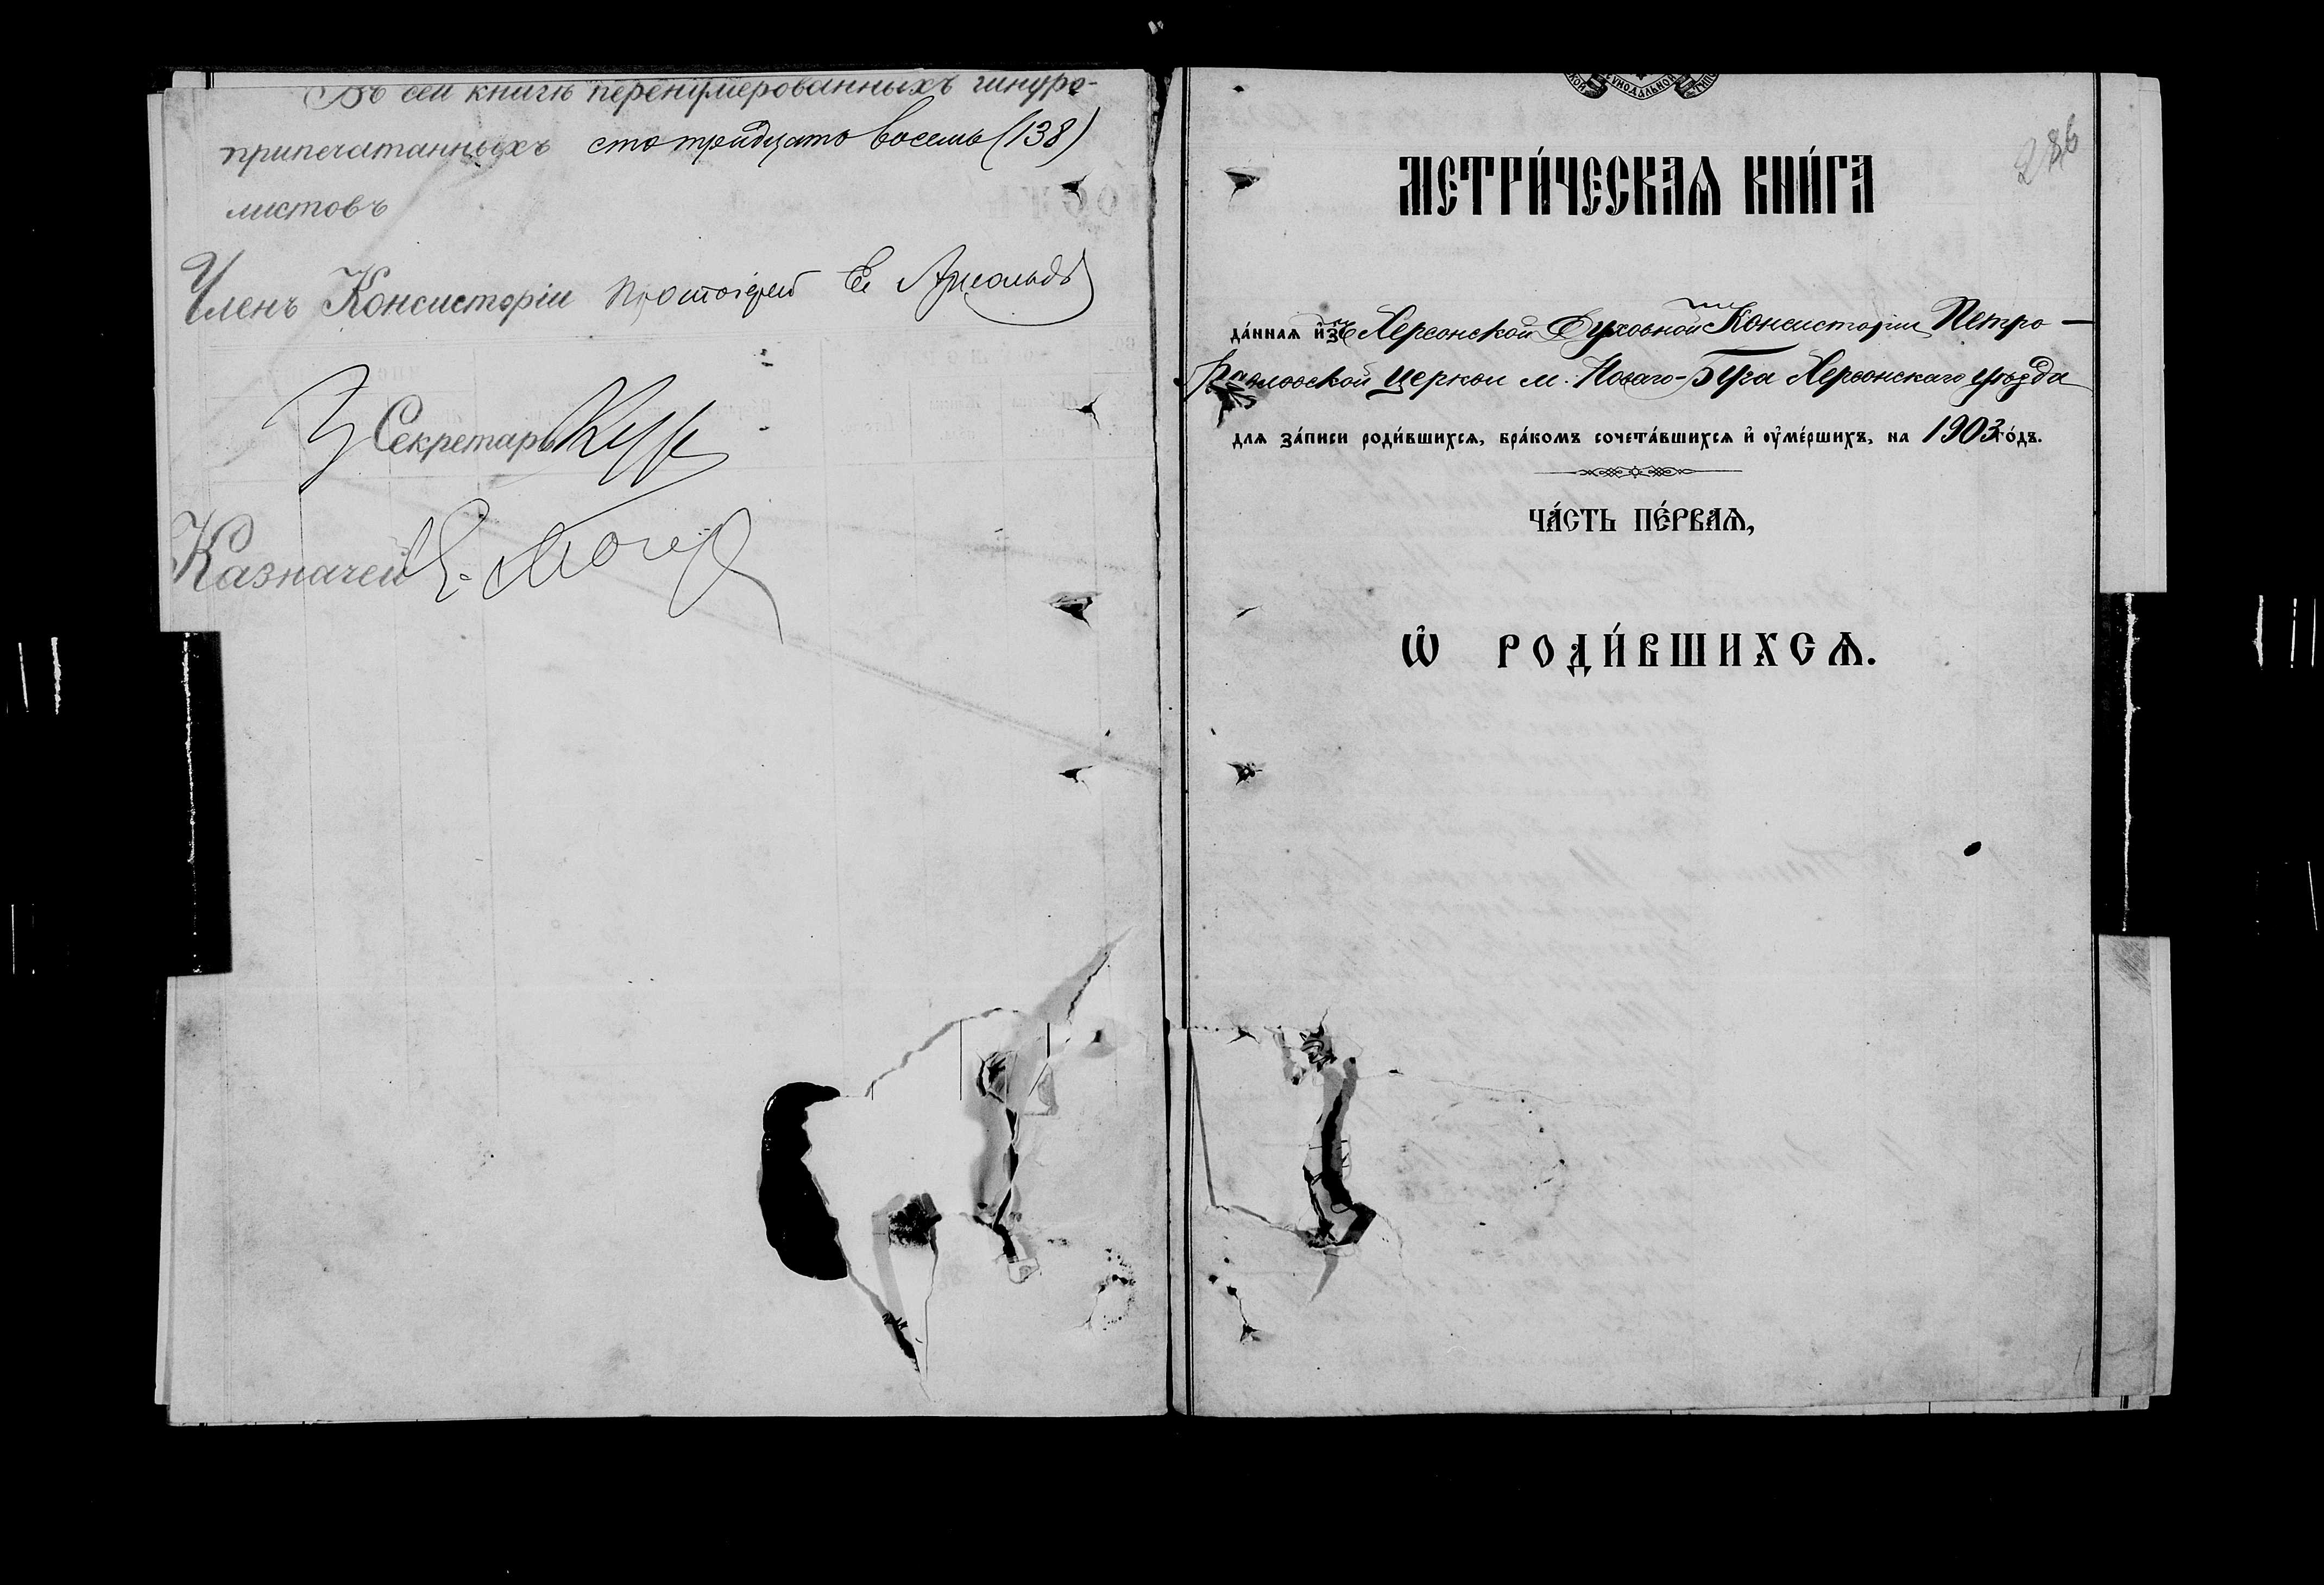 Въ сей книгѣ перенумерованныхъ шнуро-
припечатанныхъ сто тридцать восемь (138)
листовъ
Членъ Консисторіи Протоіерей
Секретарь
Казначей
286
МЕТРИ́ЧЕСКАѦ КНИ́ГА
да́ннаѧ и҆зъ Херсонской Духовной Консисторіи Петро-
Павловской церкви м. Новаго-Буга Херсонскаго уѣзда
для за́писи роди́вшихсѧ, бра́комъ сочета́вшихсѧ и҆ ᲂу҆ме́ршихъ, на 1903 го́дъ.
ЧА́СТЬ ПЕ́РВАѦ,
Ѡ҆ РОДИ́ВШИХСѦ.